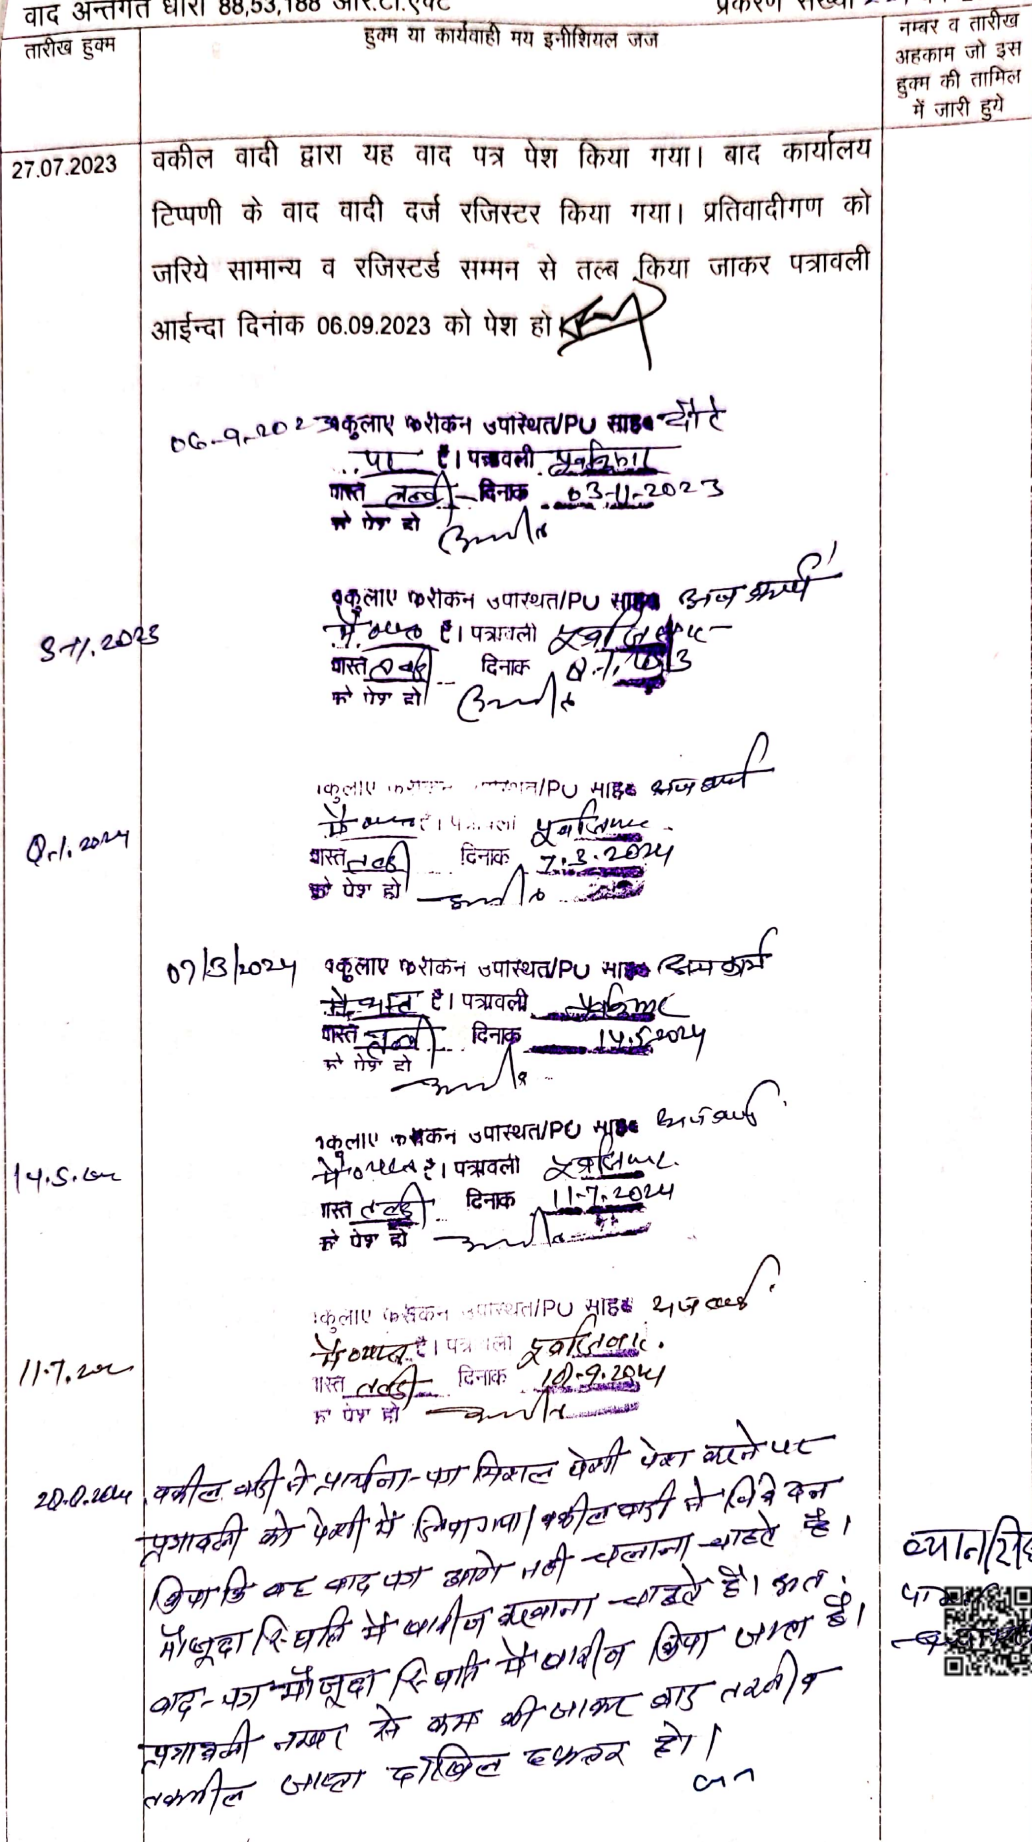 वाद अन्तर्गत धारा 88,53,188 आर.टी.एक्ट
तारीख हुक्म
हुक्म या कार्यवाही मय इनीशियल जज
नम्बर व तारीख
अहकाम जो इस
हुक्म की तामिल
में जारी हुये
27.07.2023
वकील वादी द्वारा यह वाद पत्र पेश किया गया। बाद कार्यालय
टिप्पणी के वाद वादी दर्ज रजिस्टर किया गया। प्रतिवादीगण को
जरिये सामान्य व रजिस्टर्ड सम्मन से तल्ब किया जाकर पत्रावली
आईन्दा दिनांक 06.09.2023 को पेश हो।
06-9-2023 वकुलाए फरीकन उपस्थित/PU साहब दौरे
पर है। पत्रावली
वास्ते तलबी दिनांक 03-11-2023
को पेश हो
3-11.2023
वकुलाए फरीकन उपस्थित/PU साहब अन्य कार्य
में व्यस्त है। पत्रावली
वास्ते तलबी दिनांक
को पेश हो
वकुलाए फरीकन उपस्थित/PU साहब अन्य कार्य
में व्यस्त है। पत्रावली
वास्ते तलबी दिनांक 7.3.2024
को पेश हो
07/3/2024 वकुलाए फरीकन उपस्थित/PU साहब अन्य कार्य
में व्यस्त है। पत्रावली
वास्ते तलबी दिनांक 14.5.2024
को पेश हो
वकुलाए फरीकन उपस्थित/PU साहब अन्य कार्य
में व्यस्त है। पत्रावली
वास्ते तलबी दिनांक 11-7.2024
को पेश हो
वकुलाए फरीकन उपस्थित/PU साहब अन्य कार्य
में व्यस्त है। पत्रावली
वास्ते तलबी दिनांक
को पेश हो
वकील वादी ने प्रार्थना-पत्र मिसल पेशी पेश करने पर
पत्रावली को पेशी में लिया गया। वकील वादी ने निवेदन
किया कि वह वाद पत्र आगे नहीं चलाना चाहते है।
मौजूदा स्थिति में खारीज करवाना चाहते है। अतः
वाद-पत्र मौजूदा स्थिति में खारीज किया जाता है।
पत्रावली नम्बर से कम की जाकर बाद तरतीब
तकमील जाब्ता दाखिल दफ्तर हो।